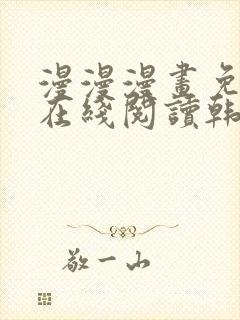 漫漫漫畫免
在綫閱讀韩
敬一山